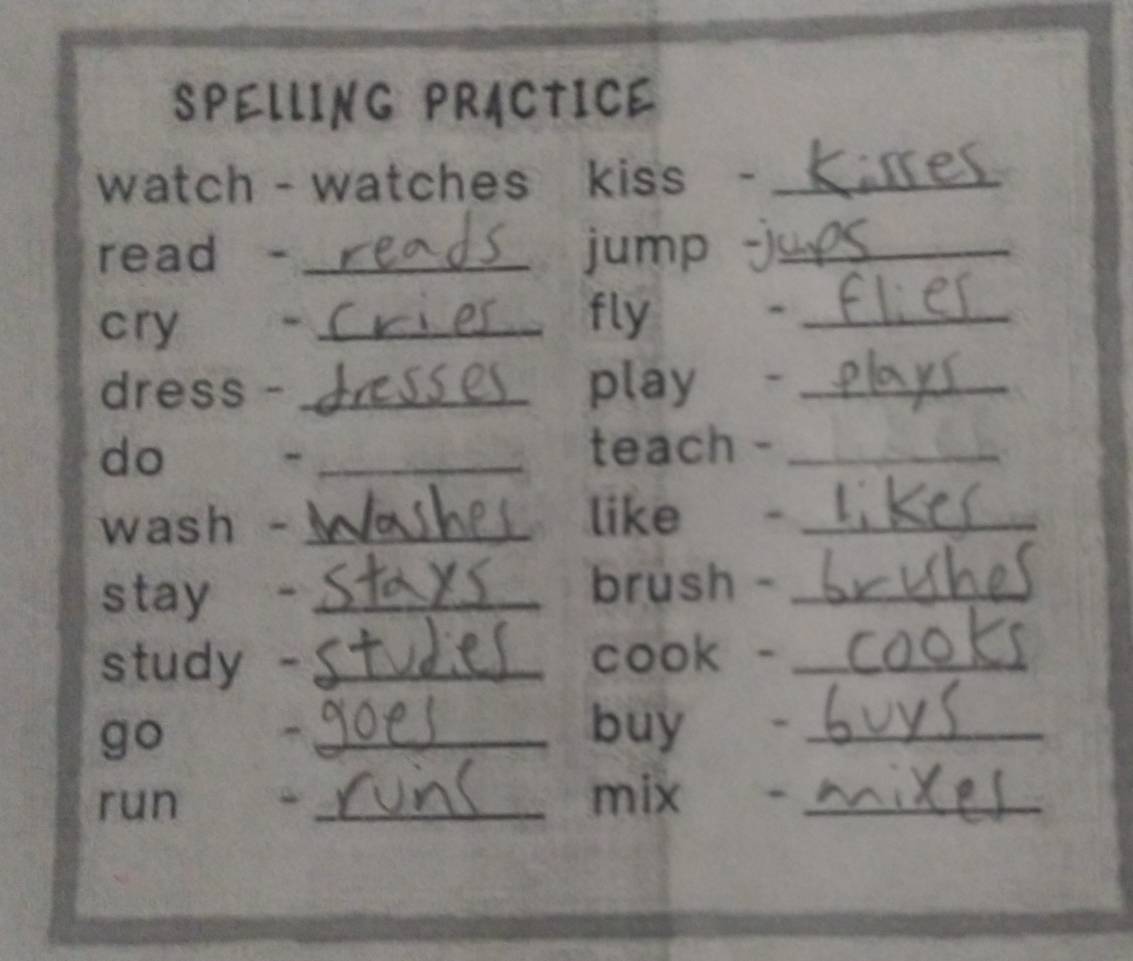 SPELLING PRACTICE
watch - watches kiss - kisses
read - reads jump - jups
cry - cries fly - flies
dress - dresses play - plays
do - ________ teach - ________
wash - washes like - likes
stay - stays brush - brushes
study - studies cook - cooks
go - goes buy - buys
run - runs mix - mixes